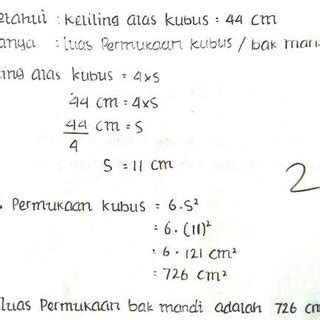 etahui : keliling alas kubus = 44 cm
anya : luas Permukaan kubus / bak man
ing alas kubus = 4xs
44 cm = 4xs
44 cm = s
4
S = 11 cm
2
Permukaan kubus = 6.S²
= 6.(11)²
= 6.121 cm²
= 726 cm²
luas Permukaan bak mandi adalah 726 cm